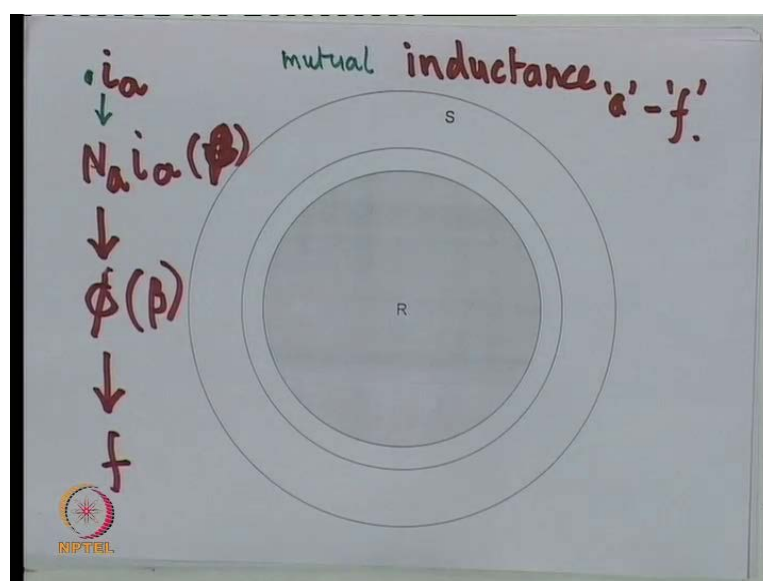 .ia
mutual inductance 'a' - 'f'.
↓
Na ia (β)
↓
ϕ(β)
↓
f
S
R
NPTEL